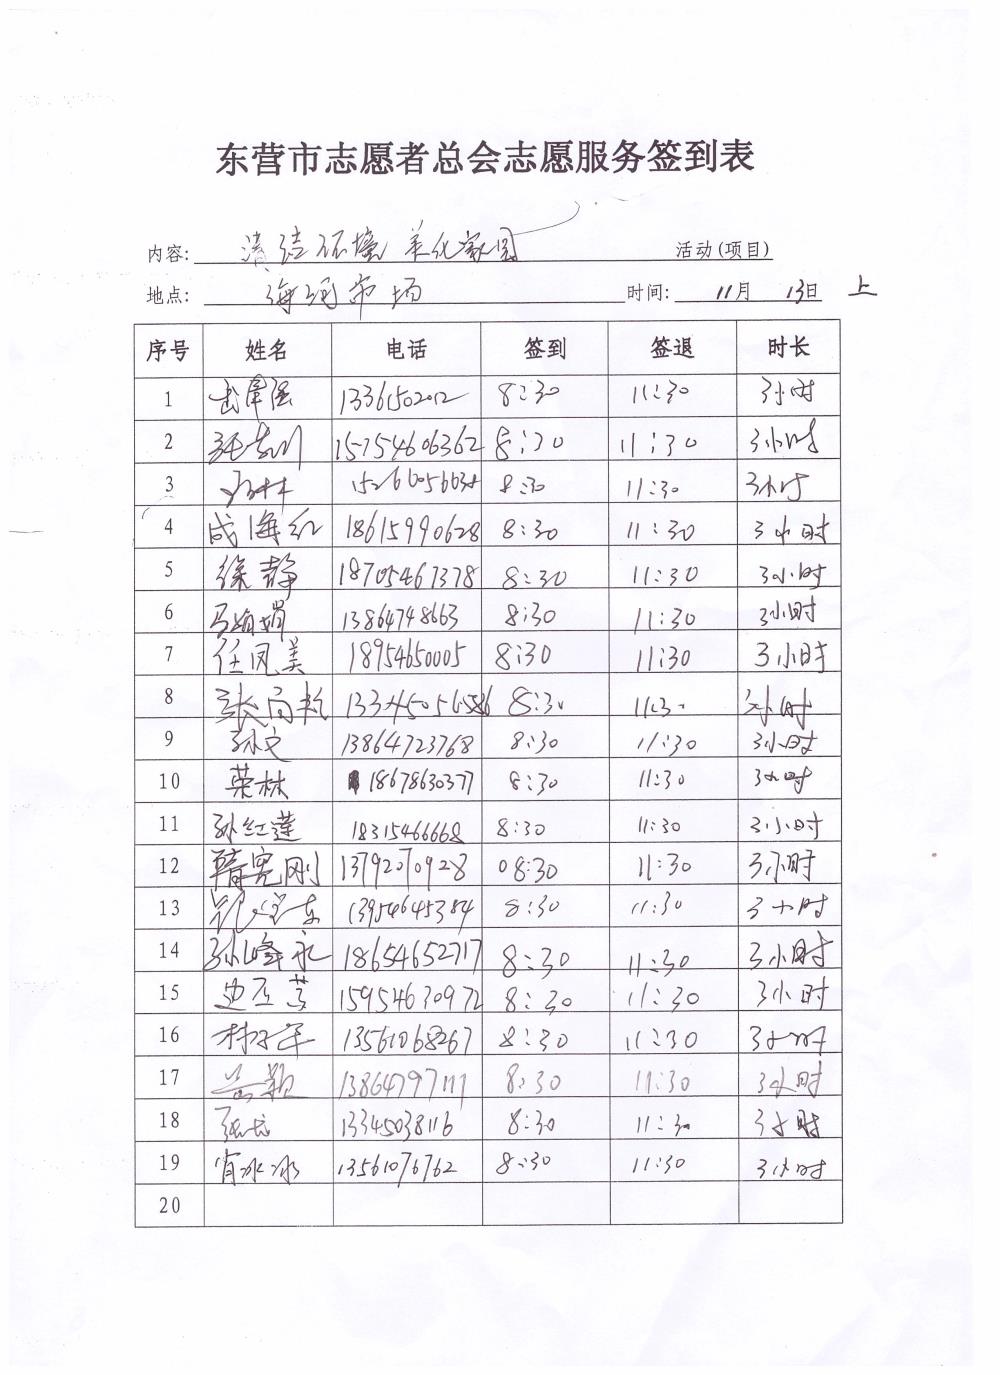 东营市志愿者总会志愿服务签到表
内容: 清洁环境 美化家园 活动(项目)
地点: 海河市场 时间: 11月 13日 上
序号 姓名 电话 签到 签退 时长
1 13361502012 8:30 11:30 3小时
2 15754606362 8:30 11:30 3小时
3 8:30 11:30 3小时
4 成海红 18615990628 8:30 11:30 3小时
5 徐静 18705467378 8:30 11:30 3小时
6 马娟娟 13864748663 8:30 11:30 3小时
7 任凤美 18954650005 8:30 11:30 3小时
8 8:30 11:30 3小时
9 孙文 13864723768 8:30 11:30 3小时
10 荣林 18678630377 8:30 11:30 3小时
11 孙红莲 18315466668 8:30 11:30 3小时
12 韩宪刚 13792070928 08:30 11:30 3小时
13 13954645384 8:30 11:30 3小时
14 孙峰永 18654652717 8:30 11:30 3小时
15 15954630972 8:30 11:30 3小时
16 林子军 13561068267 8:30 11:30 3小时
17 13864797117 8:30 11:30 3小时
18 13345038116 8:30 11:30 3小时
19 肖冰冰 13561076762 8:30 11:30 3小时
20